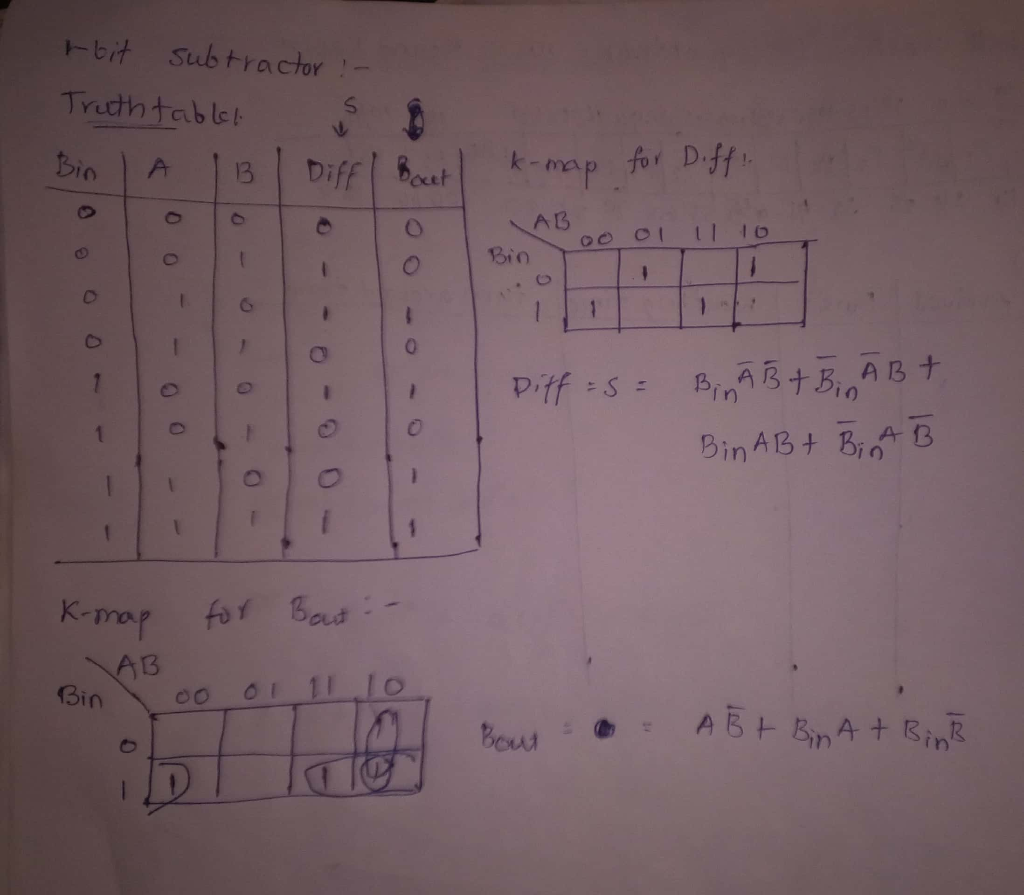 1-bit subtractor :-
Truth table:
S
Bin A B Diff Bout
0 0 0 0 0
0 0 1 1 0
0 1 0 1 1
0 1 1 0 0
1 0 0 1 1
1 0 1 0 0
1 1 0 0 1
1 1 1 1 1
K-map for Diff:
AB
00 01 11 10
Bin
0 1 1
1 1 1
Diff = S = Bin A̅ B̅ + B̅in A̅ B +
Bin AB + B̅in A B̅
K-map for Bout :-
AB
Bin 00 01 11 10
0 1
1 1 1 1
Bout = = A B̅ + Bin A + Bin B̅